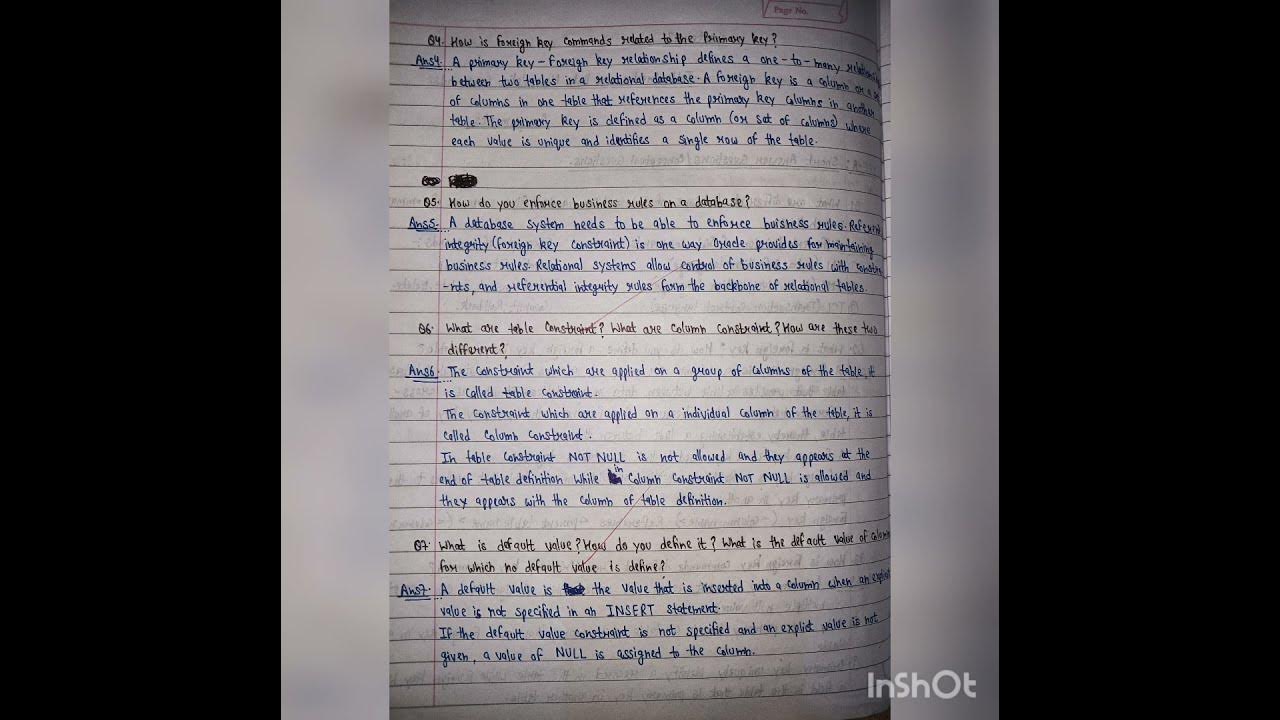 Page No.
Q4. How is foreign key commands related to the Primary key?
Ans4. A primary key - foreign key relationship defines a one-to-many
between two tables in a relational database. A foreign key is a column or a
of columns in one table that references the primary key columns in another
table. The primary key is defined as a column (or set of columns) where
each value is unique and identifies a single row of the table.
Q5. How do you enforce business rules on a database?
Ans5. A database system needs to be able to enforce buisness rules.
integrity (foreign key constraint) is one way Oracle provides for maintaining
business rules. Relational systems allow control of business rules with constra
-nts, and referential integrity rules form the backbone of relational tables.
Q6. What are table constraint? What are column constraint? How are these two
different?
Ans6. The constraint which are applied on a group of columns of the table, it
is called table constraint.
The constraint which are applied on a individual column of the table, it is
called column constraint.
In table constraint NOT NULL is not allowed and they appears at the
end of table definition while in column constraint NOT NULL is allowed and
they appears with the column of table definition.
Q7. What is default value? How do you define it? What is the default value of
for which no default value is define?
Ans7. A default value is the value that is inserted into a column when an
value is not specified in an INSERT statement.
If the default value constraint is not specified and an explict value is not
given, a value of NULL is assigned to the column.
InShOt